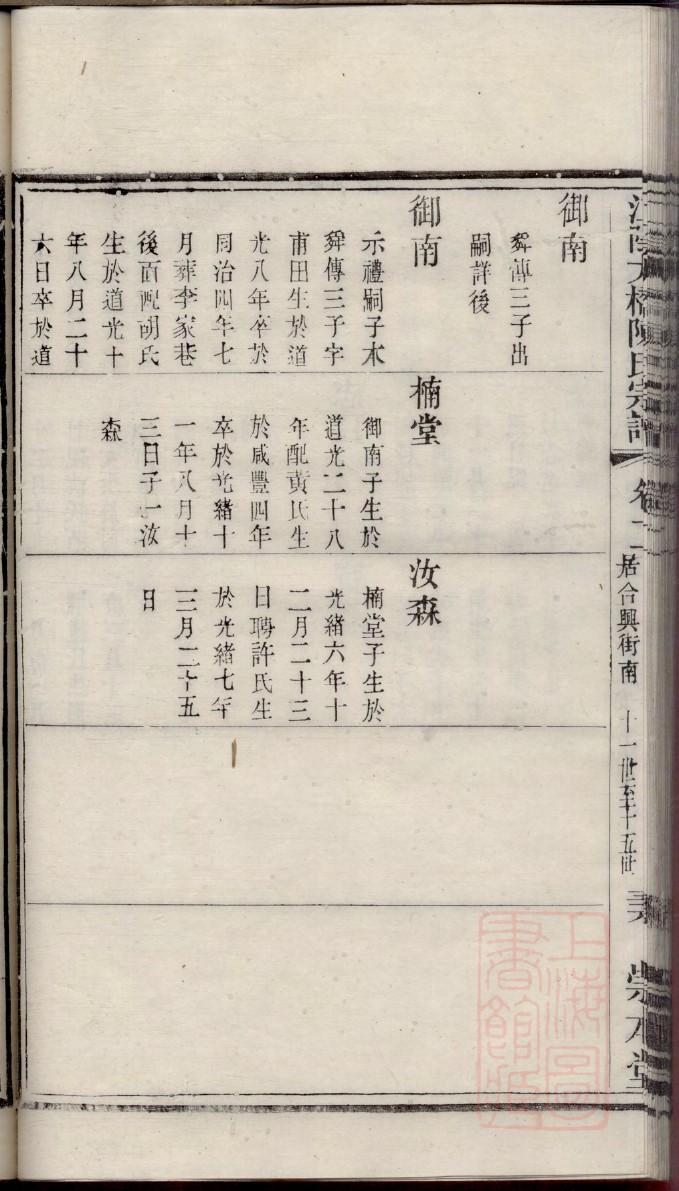 江陰大橋陳氏宗譜
卷二
居合興街南
十一世至十五世
崇本堂
御南
舜傳三子出
嗣詳後
御南
示禮嗣子本
舜傳三子字
甫田生於道
光八年卒於
同治四年七
月葬李家巷
後面配胡氏
生於道光十
年八月二十
六日卒於道
楠堂
御南子生於
道光二十八
年配黃氏生
於咸豐四年
卒於光緒十
一年八月十
三日子一汝
森
汝森
楠堂子生於
光緒六年十
二月二十三
日聘許氏生
於光緒七年
三月二十五
日
上海圖
書館所